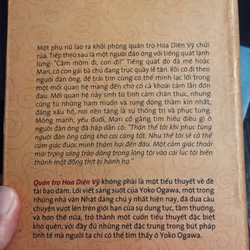 Một phụ nữ lao ra khỏi phòng quán trọ Hoa Diên Vỹ chửi
rủa. Tiếp theo sau là một người đàn ông với tiếng quát lạnh
lùng: "Câm mồm đi, con đĩ!" Tiếng quát đó đã mê hoặc
Mari, cô con gái bà chủ đang trực quầy lễ tân. Rồi cô đi theo
người đàn ông, đi tìm trái tim mình để mê lạc lối trong
một mối quan hệ mang đến cho cô cả khoái cảm lẫn đớn
đau. Mối quan hệ này sinh từ tình cảm chân thực, nhưng
cùng từ những ham muốn và rung động thầm kín nhất,
đáng xấu hổ, nơi nền tảng là sự thống trị và phục tùng.
Mỏng manh, yếu đuối, Mari cố gắng tìm hiểu điều gì ở
người đàn ông đã hấp dẫn cô: "Thân thể tôi khi phục tùng
người đàn ông càng khó coi càng tốt. Như thế tôi sẽ có thể
cảm giác được mình thảm hại đến đâu. Một cảm giác thoải
mái trong sáng trào dâng trong lòng tôi vào cái lúc tôi biến
thành một đống thịt bị hành hạ."
Quán trọ Hoa Diên Vỹ không phải là một tiểu thuyết về đề
tài bạo dâm. Lối viết sáng suốt của Yoko Ogawa, một trong
những nhà văn Nhật đáng chú ý nhất hiện nay, đã đưa câu
chuyện vượt lên trên giới hạn của sự dung tục, tầm thường,
và hơn thế nữa, trở thành một cuốn tiểu thuyết đặc biệt
khó quên, với đầy đủ những nét đặc trưng trong bút pháp
tinh tế mà người ta chỉ có thể tìm thấy ở Yoko Ogawa.